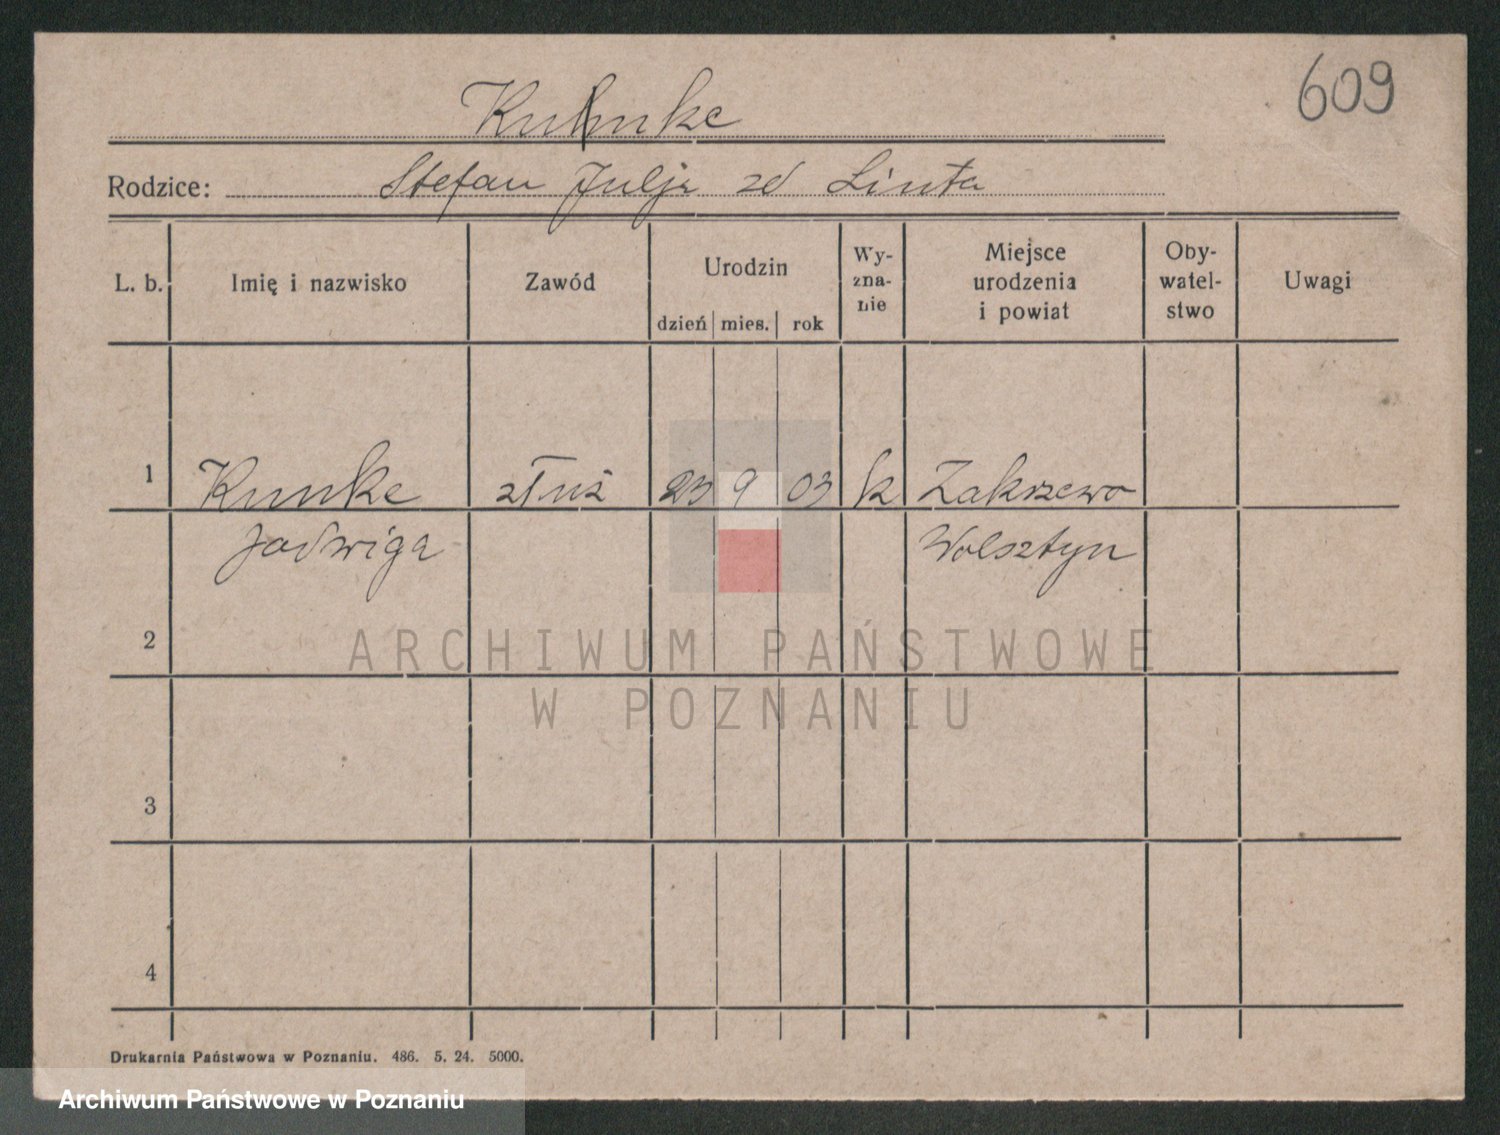 609
Kuhnke
Rodzice: Stefan Julja zd Linta
L. b. Imię i nazwisko Zawód Urodzin dzień mies. rok Wy-zna-nie Miejsce urodzenia i powiat Oby-watel-stwo Uwagi
1 Kunke służ 23 9 03 k Zakrzewo
Jadwiga Wolsztyn
2
ARCHIWUM PAŃSTWOWE
W POZNANIU
3
4
Drukarnia Państwowa w Poznaniu. 486. 5. 24. 5000.
Archiwum Państwowe w Poznaniu